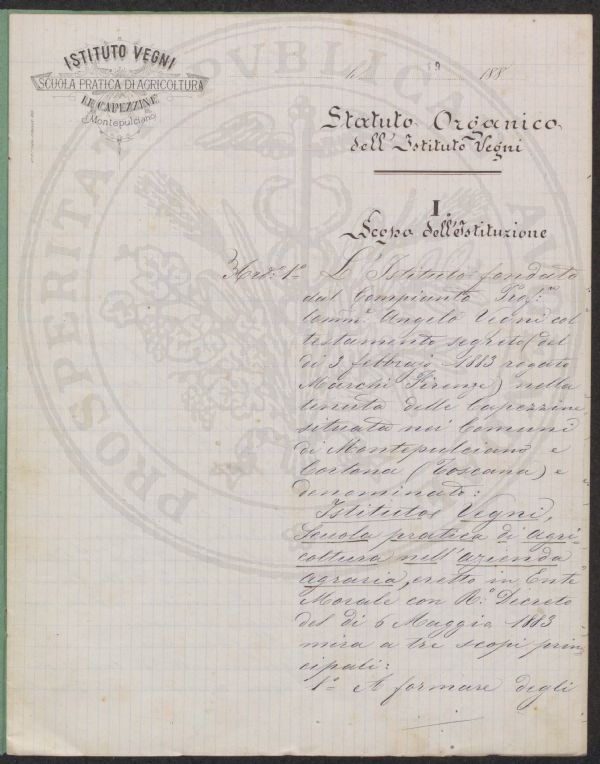 ISTITUTO VEGNI
SCUOLA PRATICA DI AGRICOLTURA
LE CAPEZZINE
Montepulciano
li 19 188
Statuto Organico
dell'Istituto Vegni
I.
Scopo dell'Istituzione
Art.° 1° L'Istituto fondato
dal Compianto Prof.
Comm. Angelo Vegni col
testamento segreto (del
di 3 febbrajo 1883 rogato
Marchi Firenze) nella
tenuta delle Capezzine
situata nei Comuni
di Montepulciano e
Cortona (Toscana) e
denominato:
Istituto Vegni,
Scuola pratica di agri-
coltura nell'azienda
agraria, eretto in Ente
Morale con R.° Decreto
del di 6 Maggio 1883
mira a tre scopi prin-
cipali:
1° A formare degli
PROSPERITA PVBLICA